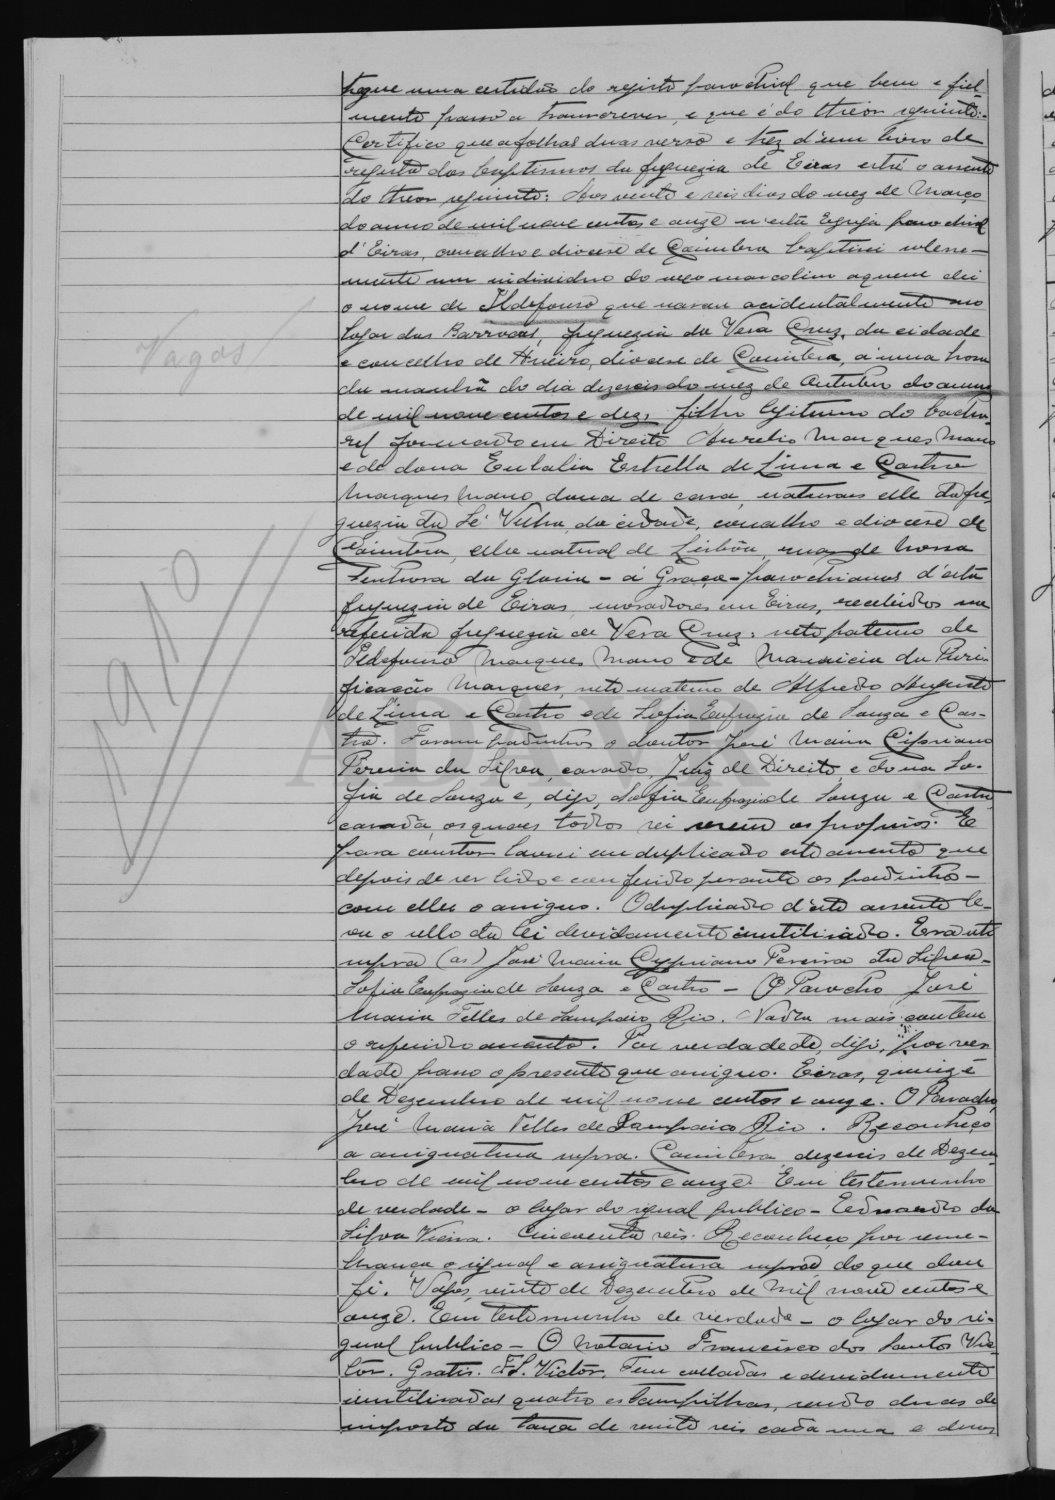 tregue uma certidão do registo parochial que bem e fiel-
mente passo a transcrever, e que é do theor seguinte:-
Certifico que a folhas duas verso e trez d'um livro de
registo dos baptismos da freguezia de Eiras está o assento
do theor seguinte: Aos vinte e seis dias do mez de Março
do anno de mil nove centos e onze n'esta Egreja parochial
d'Eiras, concelho e diocese de Coimbra baptisei solenne-
mente um individuo do sexo masculino a quem dei
o nome de Ildefonso que nasceu acidentalmente no
logar das Barrocas, freguezia da Vera Cruz, da cidade
e concelho de Aveiro, diocese de Coimbra, á uma hora
da manhã do dia dezeseis do mez de Outubro do anno
de mil nove centos e dez, filho legitimo do bacha-
rel formado em Direito Aurelio Marques Mano
e de dona Eulalia Estrella de Lima e Castro
Marques Mano, dona de casa, naturaes elle da fre-
guezia da Sé Velha, da cidade, concelho e diocese de
Coimbra, ella natural de Lisbôa, de Nossa
Senhora da Gloria - á Graça - parochianos d'esta
freguezia de Eiras, moradores em Eiras, recebidos na
referida freguezia de Vera Cruz; neto paterno de
Ildefonso Marques Mano e de Mauricia da Puri-
ficação Marques, neto materno de Alfredo Augusto
de Lima e Castro e de Sofia Eufrazia de Souza e Cas-
tro. Foram padrinhos o doutor José Maria Cipriano
Pereira da Silva, casado, Juiz de Direito, e dona So-
fia de Souza e, digo, Sofia Eufrazia de Souza e Castro
casada, os quaes todos sei serem os proprios. E
para constar lavrei em duplicado este assento que
depois de ser lido e conferido perante os padrinhos -
com elles o assigno. O duplicado d'este assento le-
va o sello da lei devidamente inutilisado. Era ut
supra (as) José Maria Cypriano Pereira da Silva -
Sofia Eufrazia de Souza e Castro - O Parocho José
Maria Telles de Sampaio Rio. Nada mais contem
o referido assento. Por verdade de, digo, por ver-
dade passo o presente que assigno. Eiras, quinze
de Dezembro de mil nove centos e onze. O Parocho,
José Maria Telles de Sampaio Rio. Reconheço
a assignatura supra. Coimbra, dezeseis de Dezem-
bro de mil nove centos e onze. Em testemunho
de verdade - o logar do signal publico - Eduardo da
Silva Vieira. Cincoenta reis. Reconheço por seme-
lhança o signal e assignatura supra do que dou
fé. Vagos, vinte de Dezembro de mil nove centos e
onze. Em testemunho de verdade - o logar do si-
gnal publico - O Notario Francisco dos Santos Vic-
tor. Gratis. F.S. Victôr. Tem colladas e devidamente
inutilisadas quatro estampilhas, sendo duas de
imposto da taxa de vinte reis cada uma e duas
Vagos
1910
ADAVR